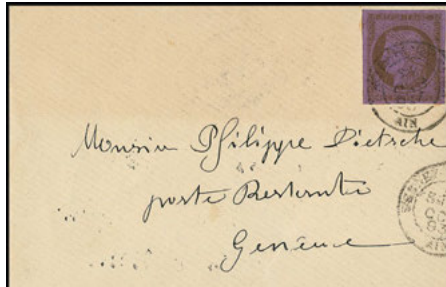 AIN
Monsieur Philippe Dietsche
poste Restante
Genève
AIN